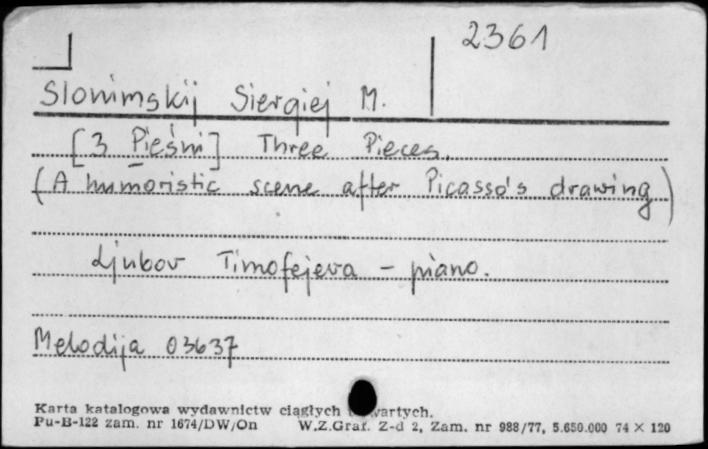 2361
Slonimskij Siergiej M.
[3 Pieśni] Three Pieces.
(A humoristic scene after Picasso's drawing)
Ljubov Timofejeva – piano.
Melodija 03637
Karta katalogowa wydawnictw ciągłych
Pu-B-122 zam. nr 1674/DW/On W.Z.Graf. Z-d 2, Zam. nr 988/77, 5.650.000 74 × 120